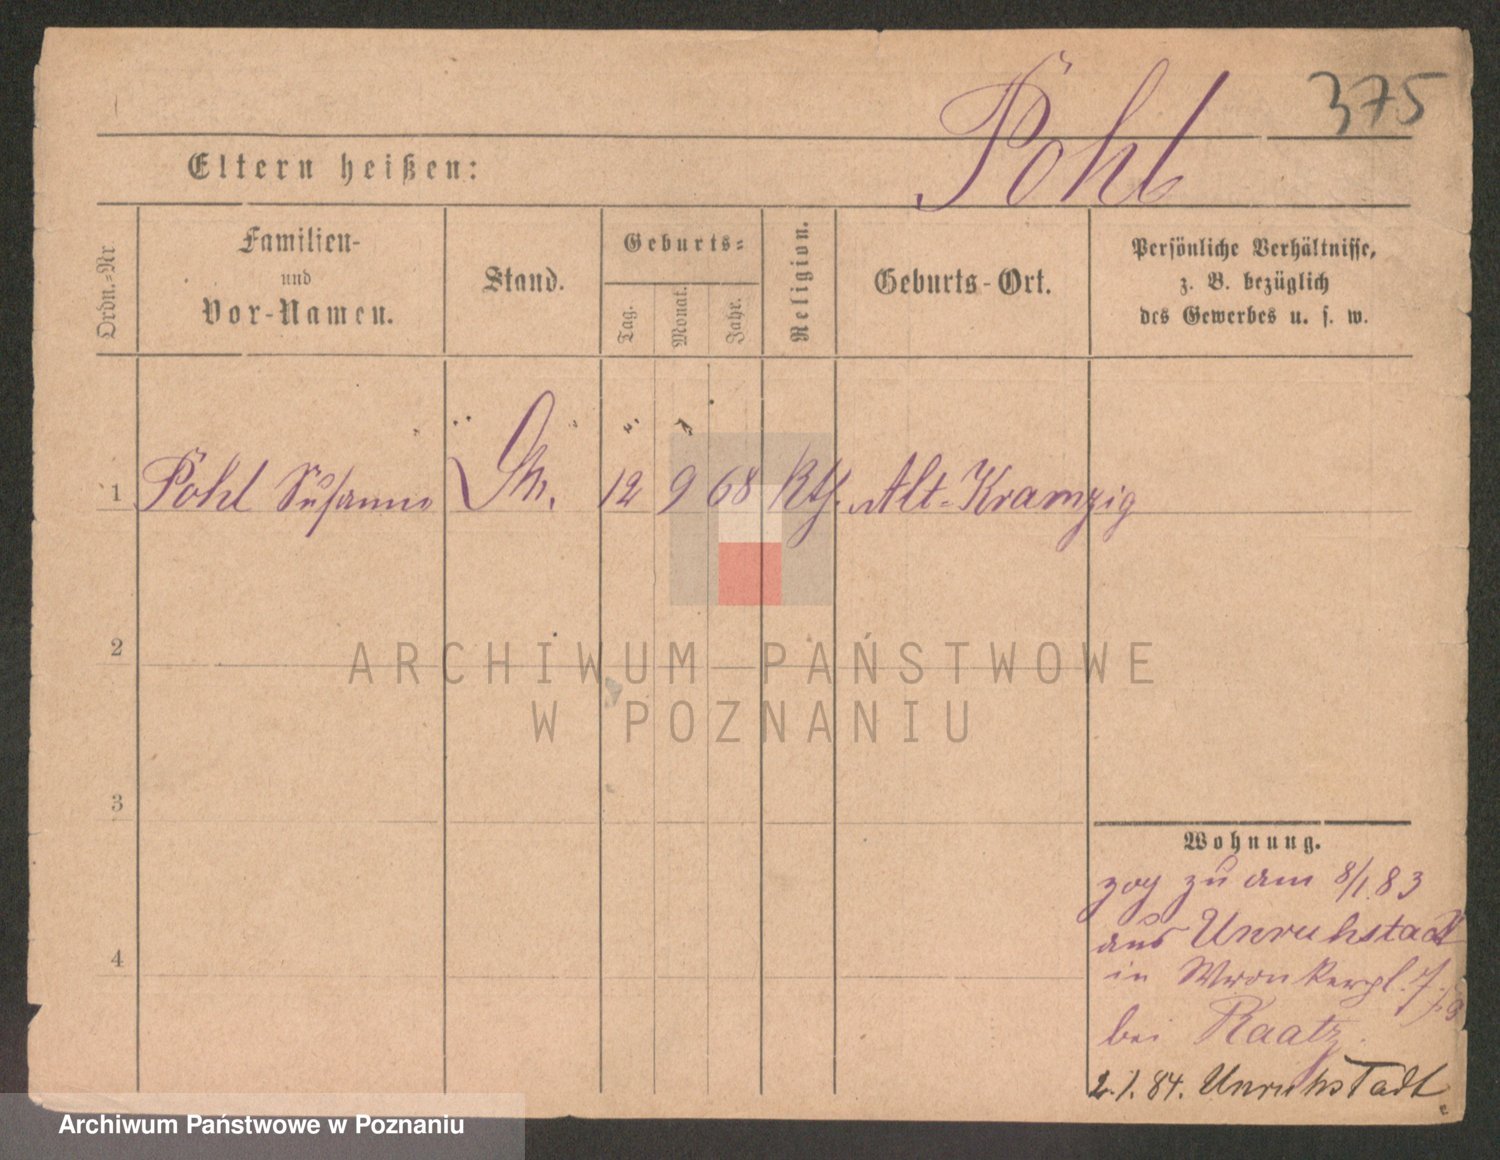 375
Pohl
Eltern heißen:
Ordn.-Nr
Familien-
und
Vor-Namen.
Stand.
Geburts-
Tag.
Monat.
Jahr.
Religion.
Geburts-Ort.
Persönliche Verhältnisse,
z. B. bezüglich
des Gewerbes u. s. w.
1 Pohl Susanna 12 9 68 Kth. Alt-Kramzig
2
ARCHIWUM PAŃSTWOWE
W POZNANIU
3
Wohnung.
zog zu am 8/1.83
aus Unruhstadt
4
in Wronkerpl. 7.
bei Raatz.
2.1.84. Unruhstadt
Archiwum Państwowe w Poznaniu